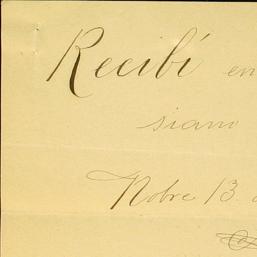 Recibí en
siano
Nobre 13